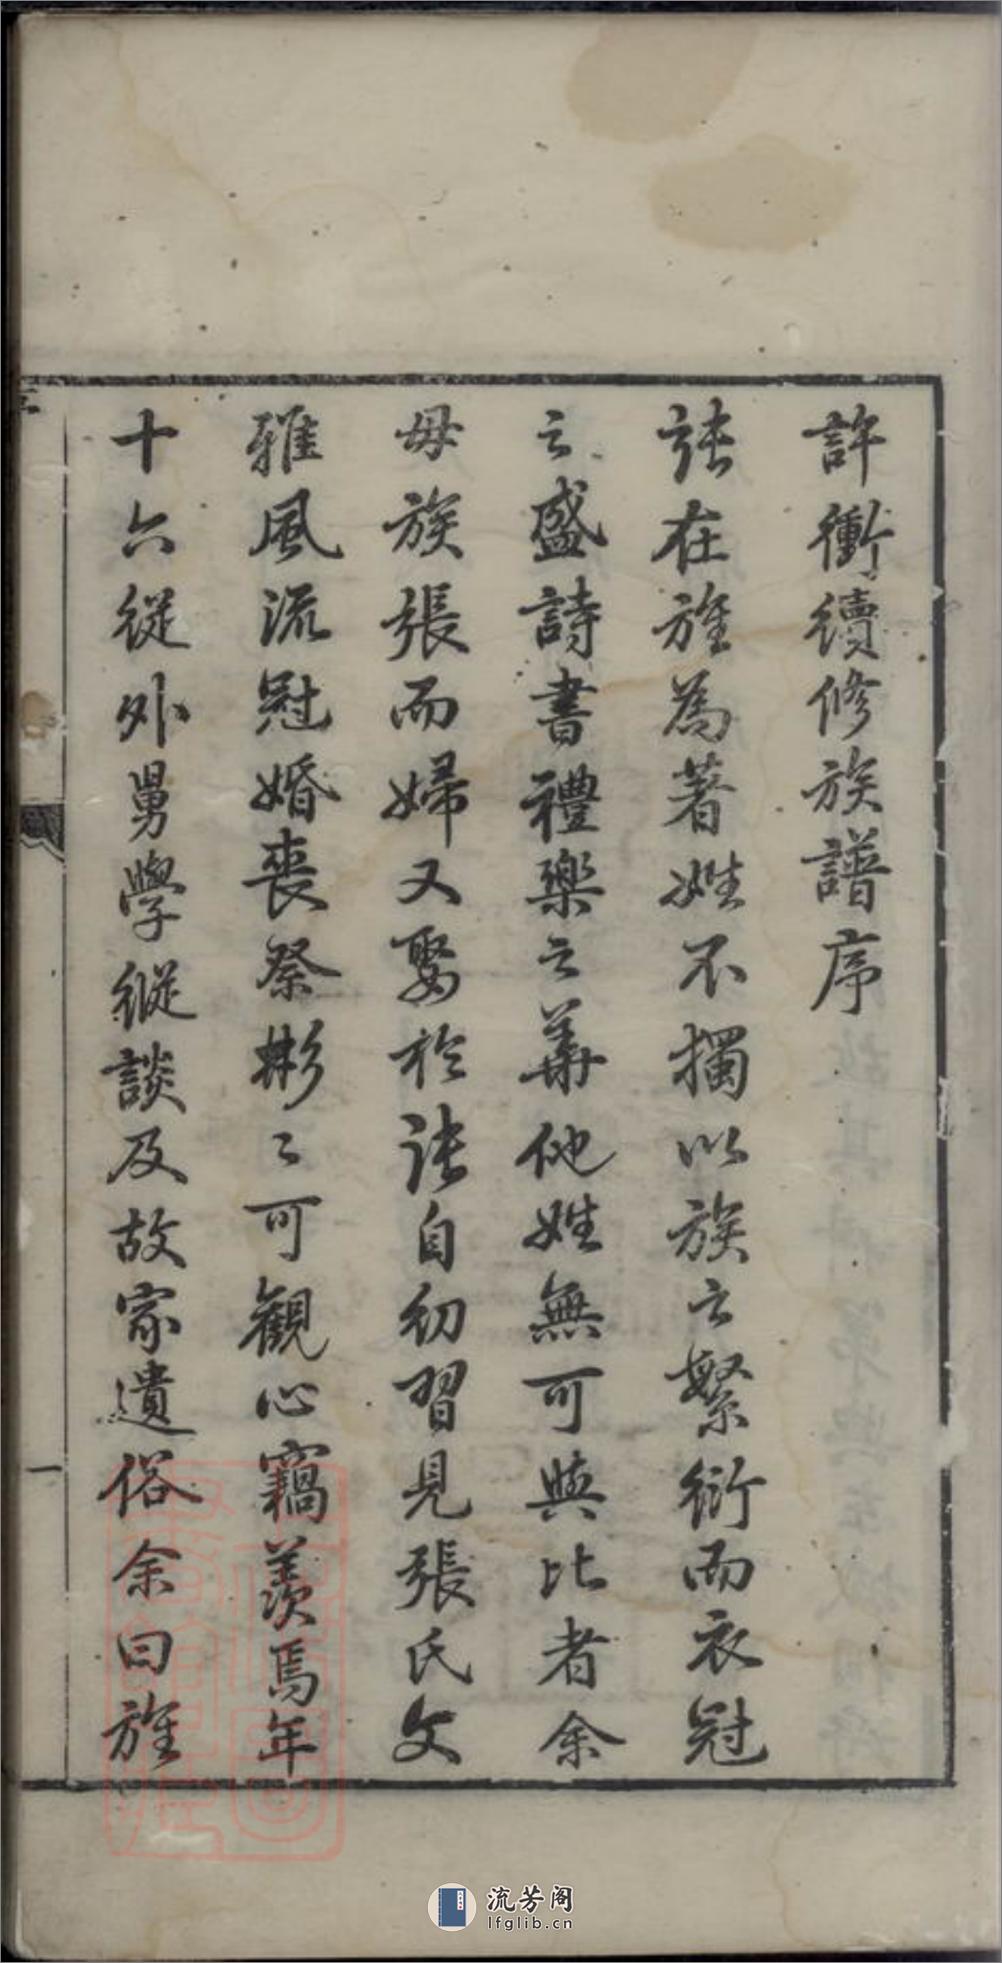 許衝續修族譜序
許在旌為著姓不獨以族之繁衍而衣冠
之盛詩書禮樂之華他姓無可與比者余
母族張而婦又娶於許自幼習見張氏文
雅風流冠婚喪祭彬〻可觀心竊羨焉年
十六從外舅學縱談及故家遺俗余曰旌
一
流芳阁
lfglib.cn